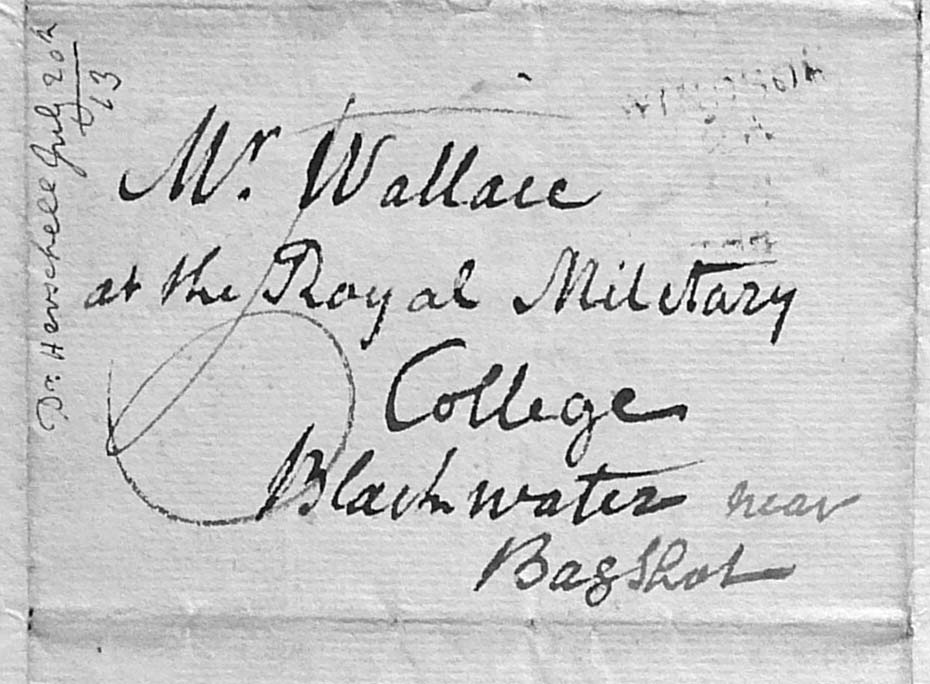 Dr. Herschell July 20th
13
Mr. Wallace
at the Royal Military
College
Blackwater near
Bagshot